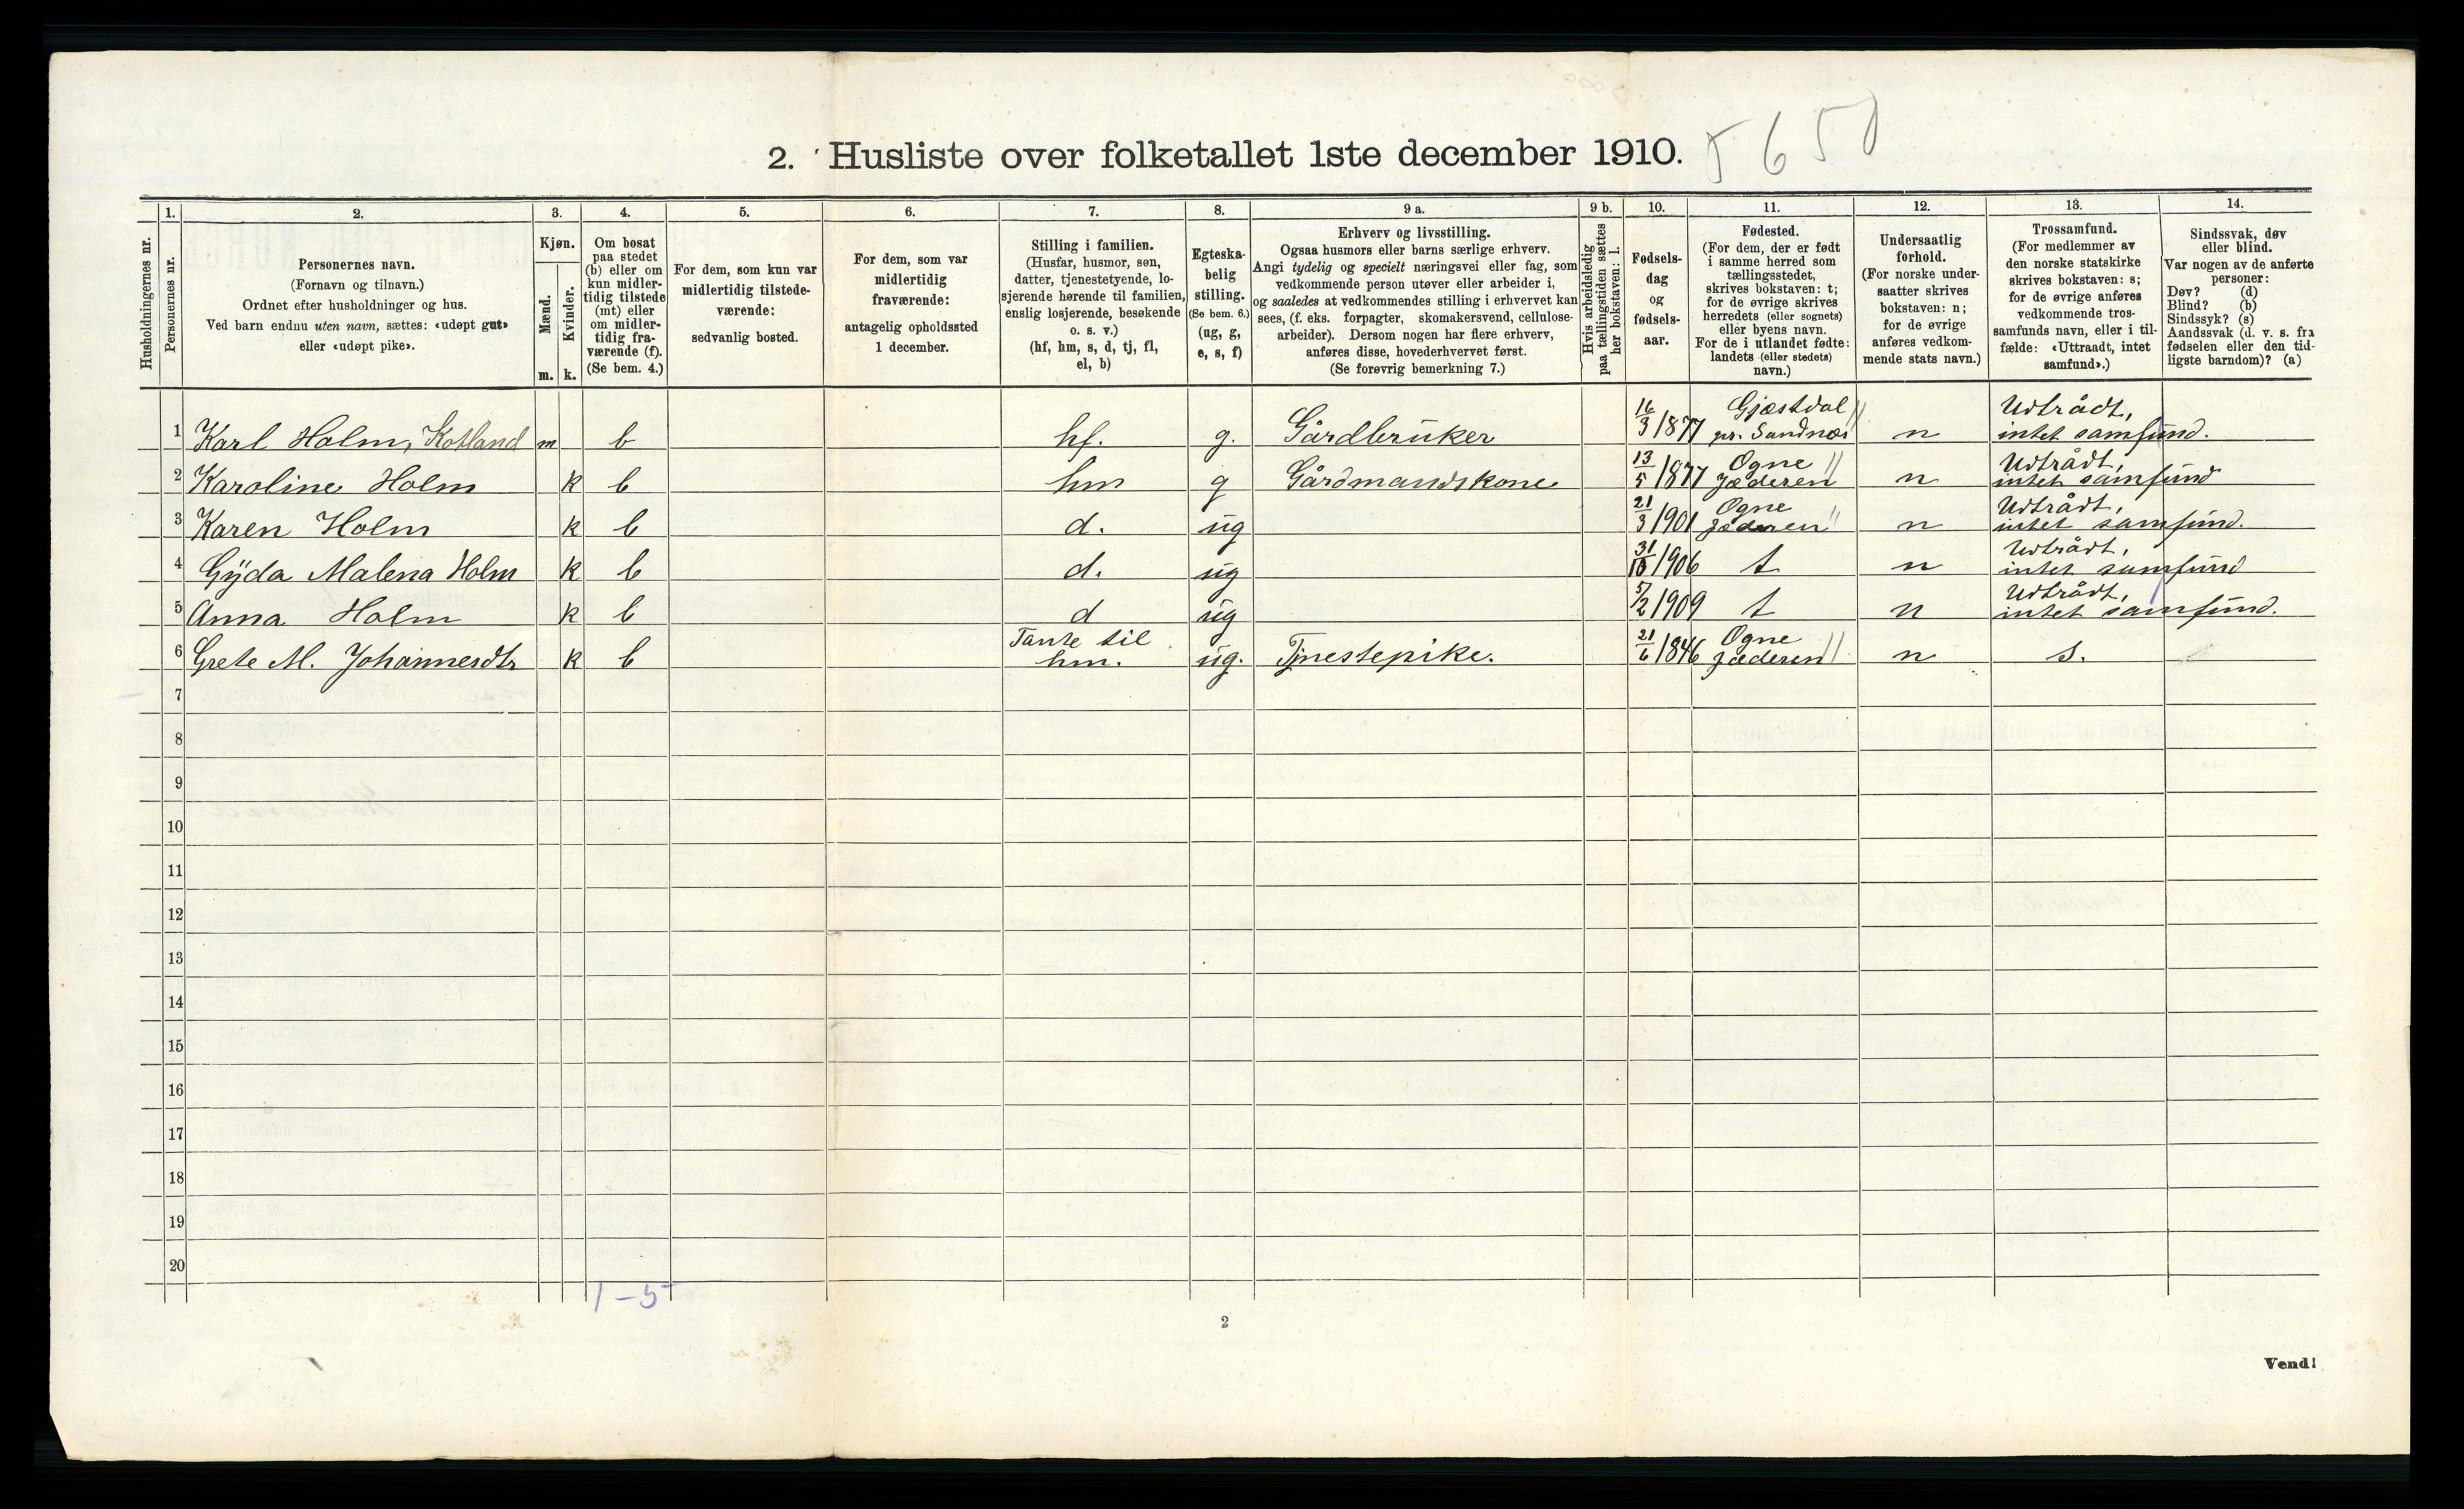 5650
2. Husliste over folketallet 1ste december 1910.
Husholdningernes nr.
1.
Personernes nr.
2.
Personernes navn.
(Fornavn og tilnavn.)
Ordnet efter husholdninger og hus.
Ved barn endnu uten navn, sættes: «udøpt gut»
eller «udøpt pike».
3.
Kjøn.
Mænd.
Kvinder.
m. k.
4.
Om bosat
paa stedet
(b) eller om
kun midler-
tidig tilstede
(mt) eller
om midler-
tidig fra-
værende (f).
(Se bem. 4.)
5.
For dem, som kun var
midlertidig tilstede-
værende:
sedvanlig bosted.
6.
For dem, som var
midlertidig
fraværende:
antagelig opholdssted
1 december.
7.
Stilling i familien.
(Husfar, husmor, søn,
datter, tjenestetyende, lo-
sjerende hørende til familien,
enslig losjerende, besøkende
o. s. v.)
(hf, hm, s, d, tj, fl,
el, b)
8.
Egteska-
belig
stilling.
(Se bem. 6.)
(ug, g,
e, s, f)
9 a.
Erhverv og livsstilling.
Ogsaa husmors eller barns særlige erhverv.
Angi tydelig og specielt næringsvei eller fag, som
vedkommende person utøver eller arbeider i,
og saaledes at vedkommendes stilling i erhvervet kan
sees, (f. eks. forpagter, skomakersvend, cellulose-
arbeider). Dersom nogen har flere erhverv,
anføres disse, hovederhvervet først.
(Se forøvrig bemerkning 7.)
9 b.
Hvis arbeidsledig
paa tællingstiden sættes
her bokstaven: l.
10.
Fødsels-
dag
og
fødsels-
aar.
11.
Fødested.
(For dem, der er født
i samme herred som
tællingsstedet,
skrives bokstaven: t;
for de øvrige skrives
herredets (eller sognets)
eller byens navn.
For de i utlandet fødte:
landets (eller stedets)
navn.)
12.
Undersaatlig
forhold.
(For norske under-
saatter skrives
bokstaven: n;
for de øvrige
anføres vedkom-
mende stats navn.)
13.
Trossamfund.
(For medlemmer av
den norske statskirke
skrives bokstaven: s;
for de øvrige anføres
vedkommende tros-
samfunds navn, eller i til-
fælde: «Uttraadt, intet
samfund».)
14.
Sindssvak, døv
eller blind.
Var nogen av de anførte
personer:
Døv? (d)
Blind? (b)
Sindssyk? (s)
Aandssvak (d. v. s. fra
fødselen eller den tid-
ligste barndom)? (a)
1 Karl Holm, Kotland m b hf. g. Gårdbruker 16/3 1877 Gjæstdal pr. Sandnæs n Udtrådt, intet samfund.
2 Karoline Holm k b hm g Gårdmandskone 13/5 1877 Ogne Jæderen n Udtrådt, intet samfund
3 Karen Holm k b d. ug 21/3 1901 Ogne Jæderen n Udtrådt, intet samfund.
4 Gyda Malena Holm k b d. ug 31/10 1906 t n Udtrådt, intet samfund
5 Anna Holm k b d ug 5/2 1909 t n Udtrådt, intet samfund.
6 Grete M. Johannesdtr k b Tante til hm. ug. Tjnestepike. 21/6 1846 Ogne Jæderen n s.
7
8
9
10
11
12
13
14
15
16
17
18
19
20
1 – 5
2
Vend!